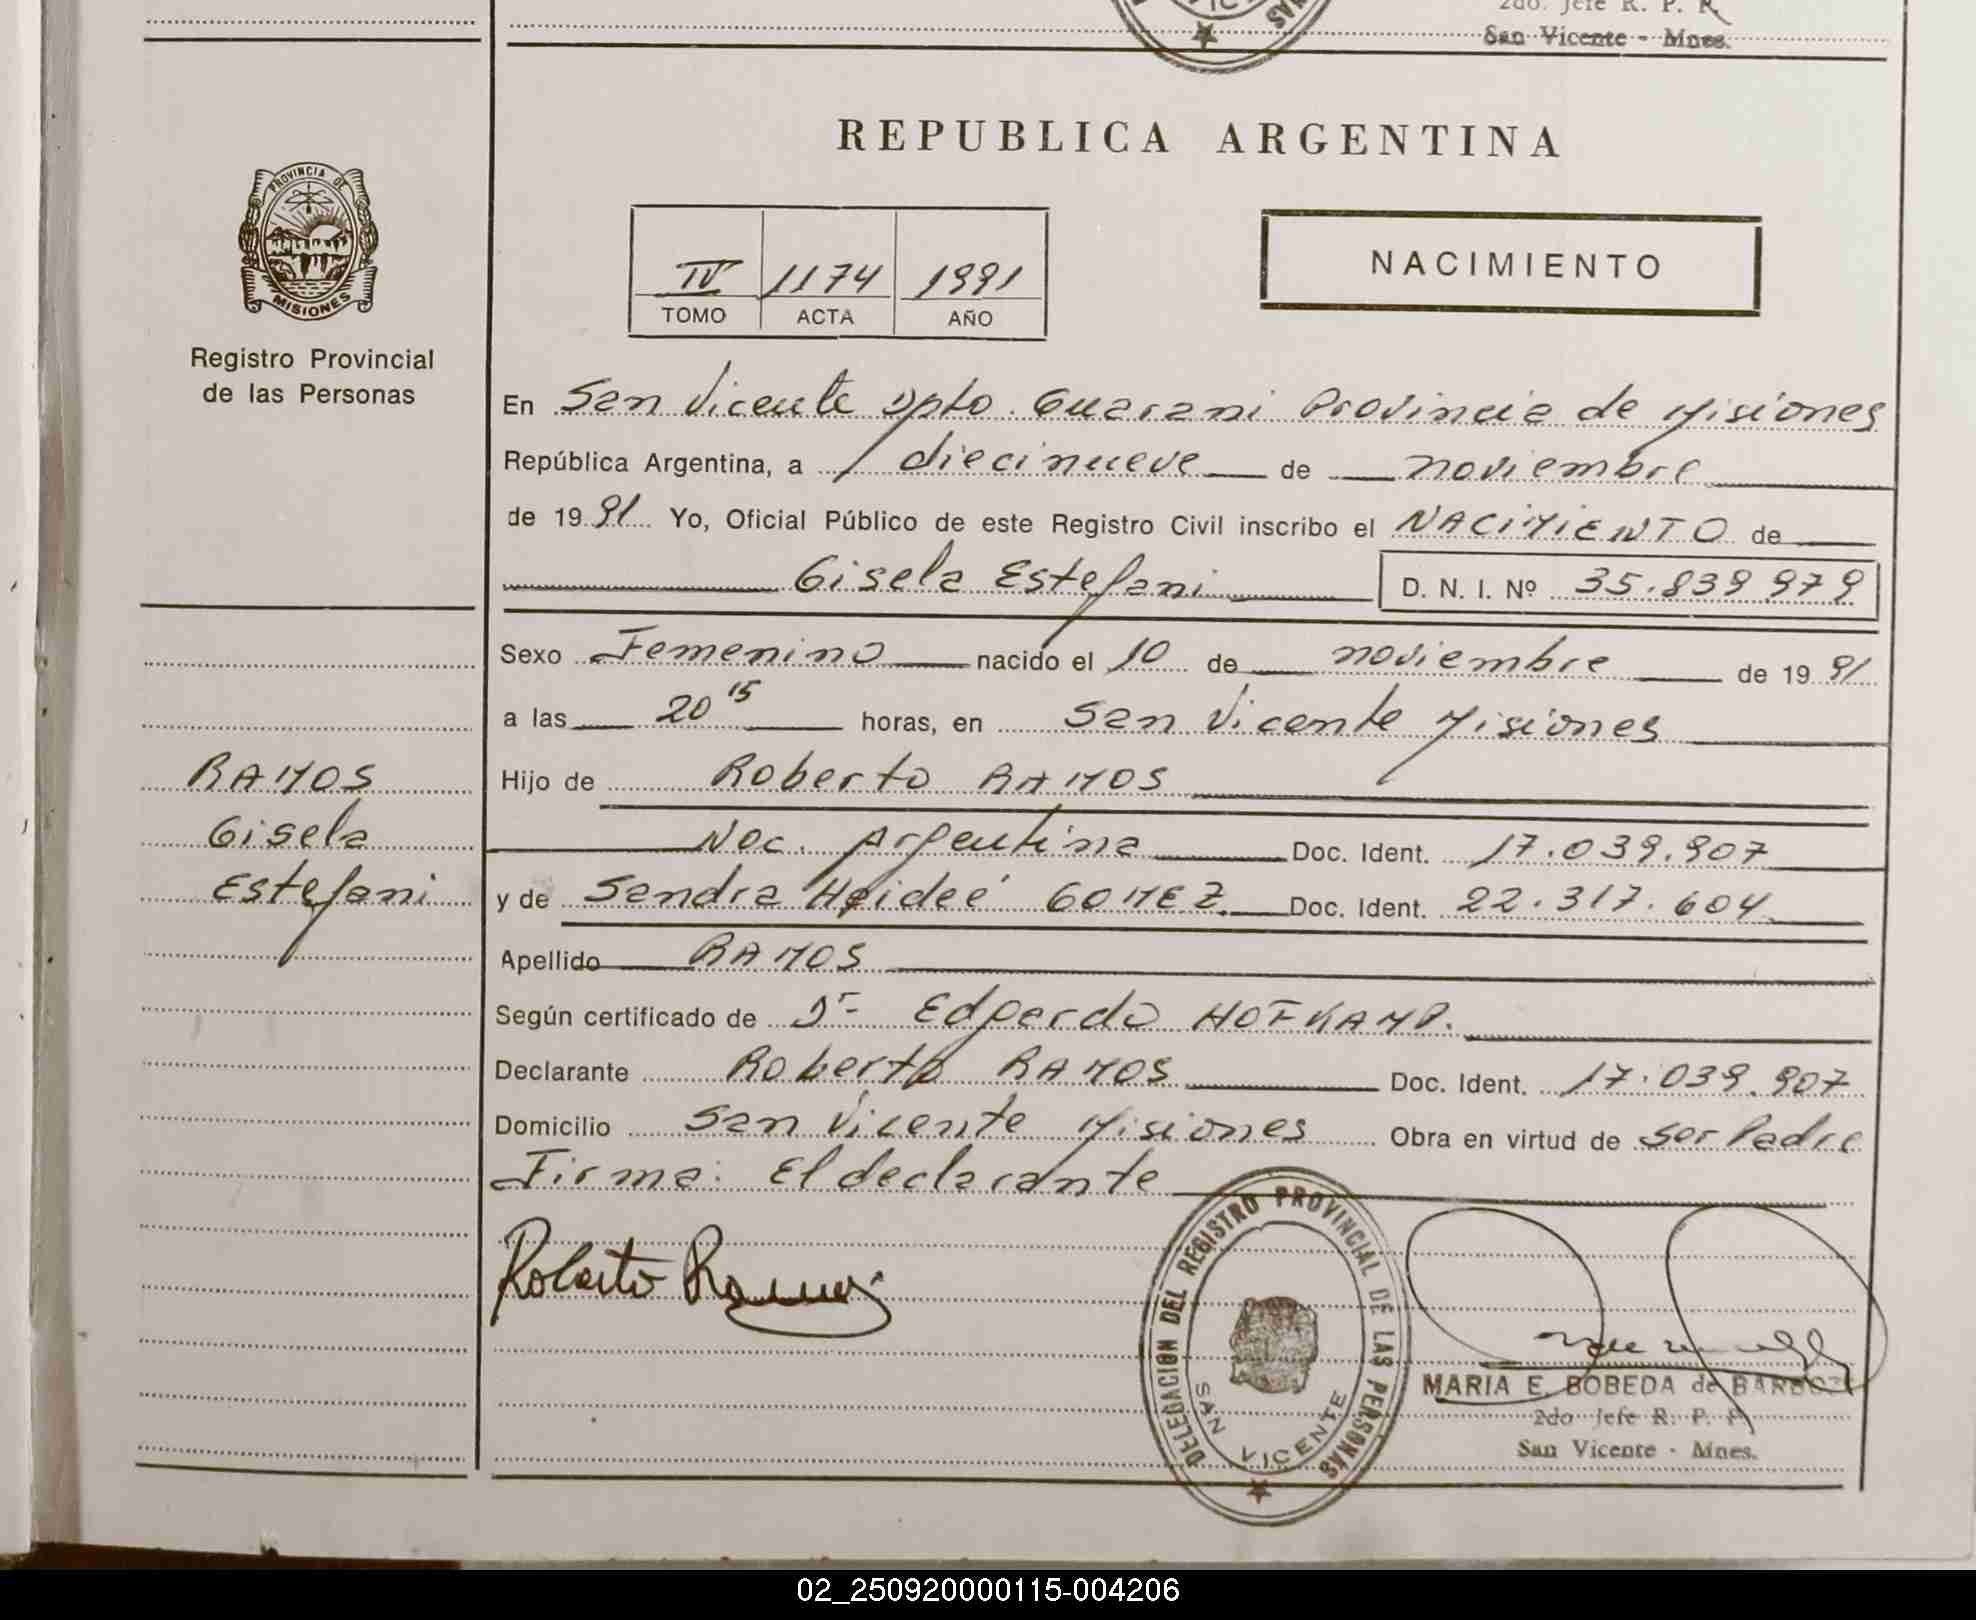 2do. Jefe R. P. P.
San Vicente - Mnes.
REPUBLICA ARGENTINA
PROVINCIA DE
MISIONES
Registro Provincial
de las Personas
IV 1174 1991
TOMO ACTA AÑO
NACIMIENTO
En San Vicente Dpto. Guarani Provincia de Misiones
República Argentina, a diecinueve de noviembre
de 1991 Yo, Oficial Público de este Registro Civil inscribo el NACIMIENTO de
Gisela Estefani D. N. I. Nº 35.839.979
Sexo Femenino nacido el 10 de noviembre de 1991
a las 20 15 horas, en San Vicente Misiones
Hijo de Roberto RAMOS
Nac. Argentina Doc. Ident. 17.039.907
y de Sandra Haideé GOMEZ Doc. Ident. 22.317.604
Apellido RAMOS
Según certificado de Dr- Edgardo HOFKAMP.
Declarante Roberto RAMOS Doc. Ident. 17.039.907
Domicilio San Vicente Misiones Obra en virtud de ser Padre
Firma: El declarante
RAMOS
Gisela
Estefani
Roberto Ramos
DELEGACION DEL REGISTRO PROVINCIAL DE LAS PERSONAS
SAN VICENTE
MARIA E. BOBEDA de BARBOZA
2do Jefe R. P. P.
San Vicente - Mnes.
02_250920000115-004206